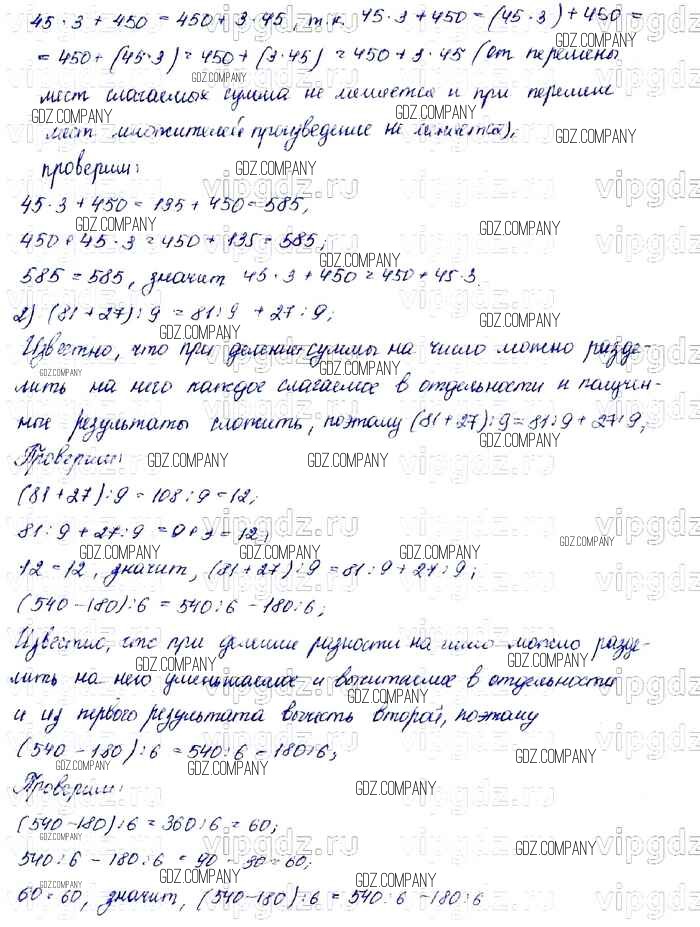 45 · 3 + 450 = 450 + 3 · 45, т.к. 45 · 3 + 450 = (45 · 3) + 450 =
= 450 + (45 · 3) = 450 + (3 · 45) = 450 + 3 · 45 (от перемены
мест слагаемых сумма не меняется и при перемене
мест множителей произведение не меняется),
проверим:
45 · 3 + 450 = 135 + 450 = 585,
450 + 45 · 3 = 450 + 135 = 585;
585 = 585, значит 45 · 3 + 450 = 450 + 45 · 3.
2) (81 + 27) : 9 = 81 : 9 + 27 : 9;
Известно, что при делении суммы на число можно разде-
лить на него каждое слагаемое в отдельности и получен-
ные результаты сложить, поэтому (81 + 27) : 9 = 81 : 9 + 27 : 9;
Проверим:
(81 + 27) : 9 = 108 : 9 = 12;
81 : 9 + 27 : 9 = 9 + 3 = 12;
12 = 12, значит, (81 + 27) : 9 = 81 : 9 + 27 : 9;
(540 − 180) : 6 = 540 : 6 − 180 : 6;
Известно, что при делении разности на число можно разде-
лить на него уменьшаемое и вычитаемое в отдельности
и из первого результата вычесть второй, поэтому
(540 − 180) : 6 = 540 : 6 − 180 : 6;
Проверим:
(540 − 180) : 6 = 360 : 6 = 60;
540 : 6 − 180 : 6 = 90 − 30 = 60;
60 = 60, значит, (540 − 180) : 6 = 540 : 6 − 180 : 6
GDZ.COMPANY
vipgdz.ru